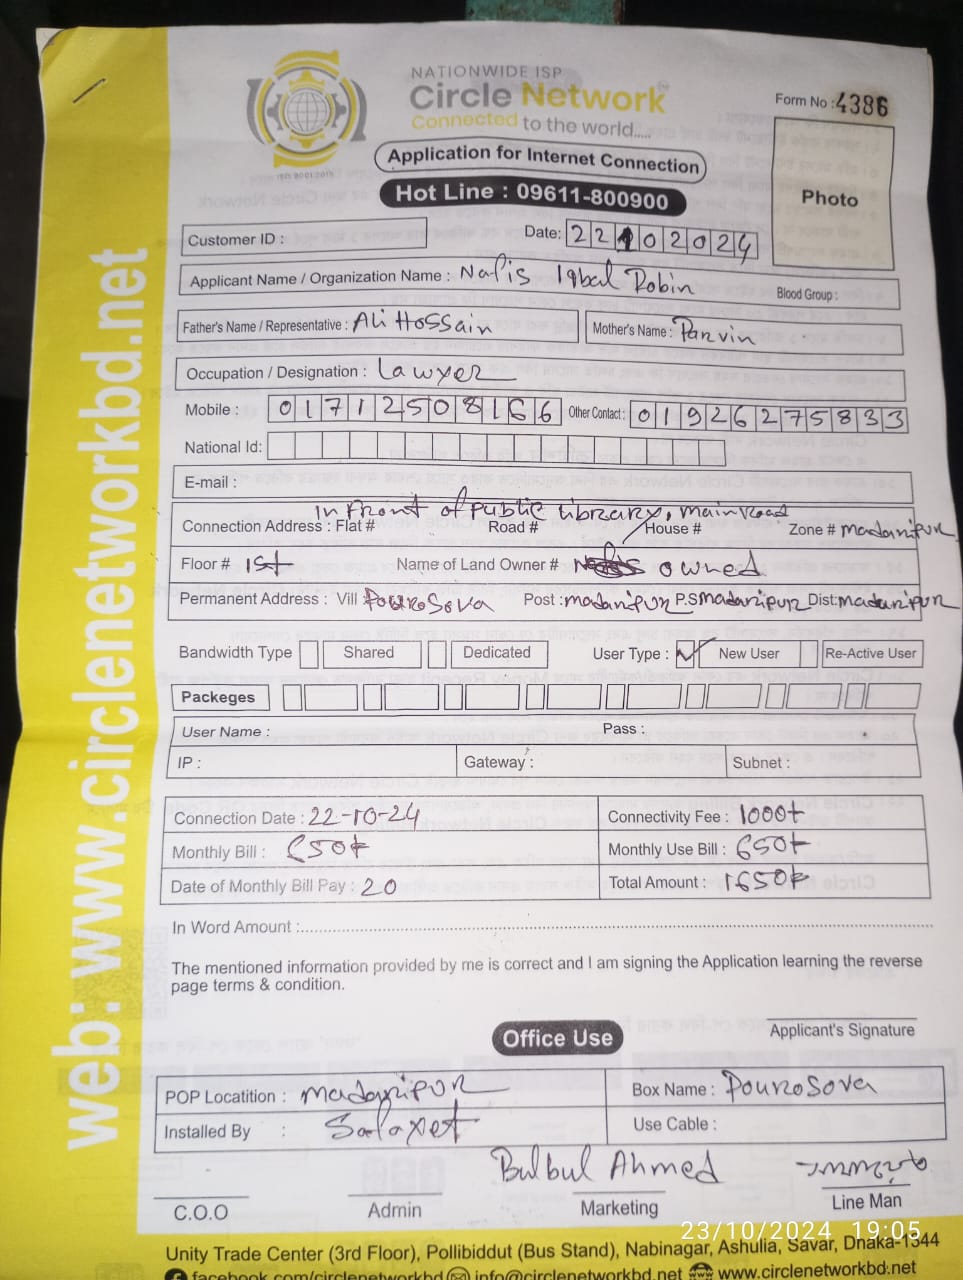 NATIONWIDE ISP
Circle Network
Connected to the world.....
ISO 9001:2015
Form No : 4386
Application for Internet Connection
Hot Line : 09611-800900
Photo
Customer ID :
Date: 22102024
Applicant Name / Organization Name : Nafis Iqbal Robin
Blood Group :
Father's Name / Representative : Ali Hossain Mother's Name : Parvin
Occupation / Designation : Lawyer
Mobile : 01712508166 Other Contact : 01926275833
National Id:
E-mail :
in Front of Public Library, main Road
Connection Address : Flat # Road # House # Zone # madaripur
Floor # 1st Name of Land Owner # owned
Permanent Address : Vill PouroSova Post : madaripur P.S madaripur Dist: madaripur
Bandwidth Type Shared Dedicated User Type : New User Re-Active User
Packeges
User Name : Pass :
IP : Gateway : Subnet :
Connection Date : 22-10-24 Connectivity Fee : 1000t
Monthly Bill : 650t Monthly Use Bill : 650t
Date of Monthly Bill Pay : 20 Total Amount : 1650t
In Word Amount :
The mentioned information provided by me is correct and I am signing the Application learning the reverse
page terms & condition.
Applicant's Signature
Office Use
POP Locatition : madaripur Box Name : Pourosova
Installed By : Use Cable :
Bulbul Ahmed
C.O.O Admin Marketing Line Man
23/10/2024 19:05
Unity Trade Center (3rd Floor), Pollibiddut (Bus Stand), Nabinagar, Ashulia, Savar, Dhaka-1344
facebook.com/circlenetworkbd info@circlenetworkbd.net www.circlenetworkbd.net
web: www.circlenetworkbd.net